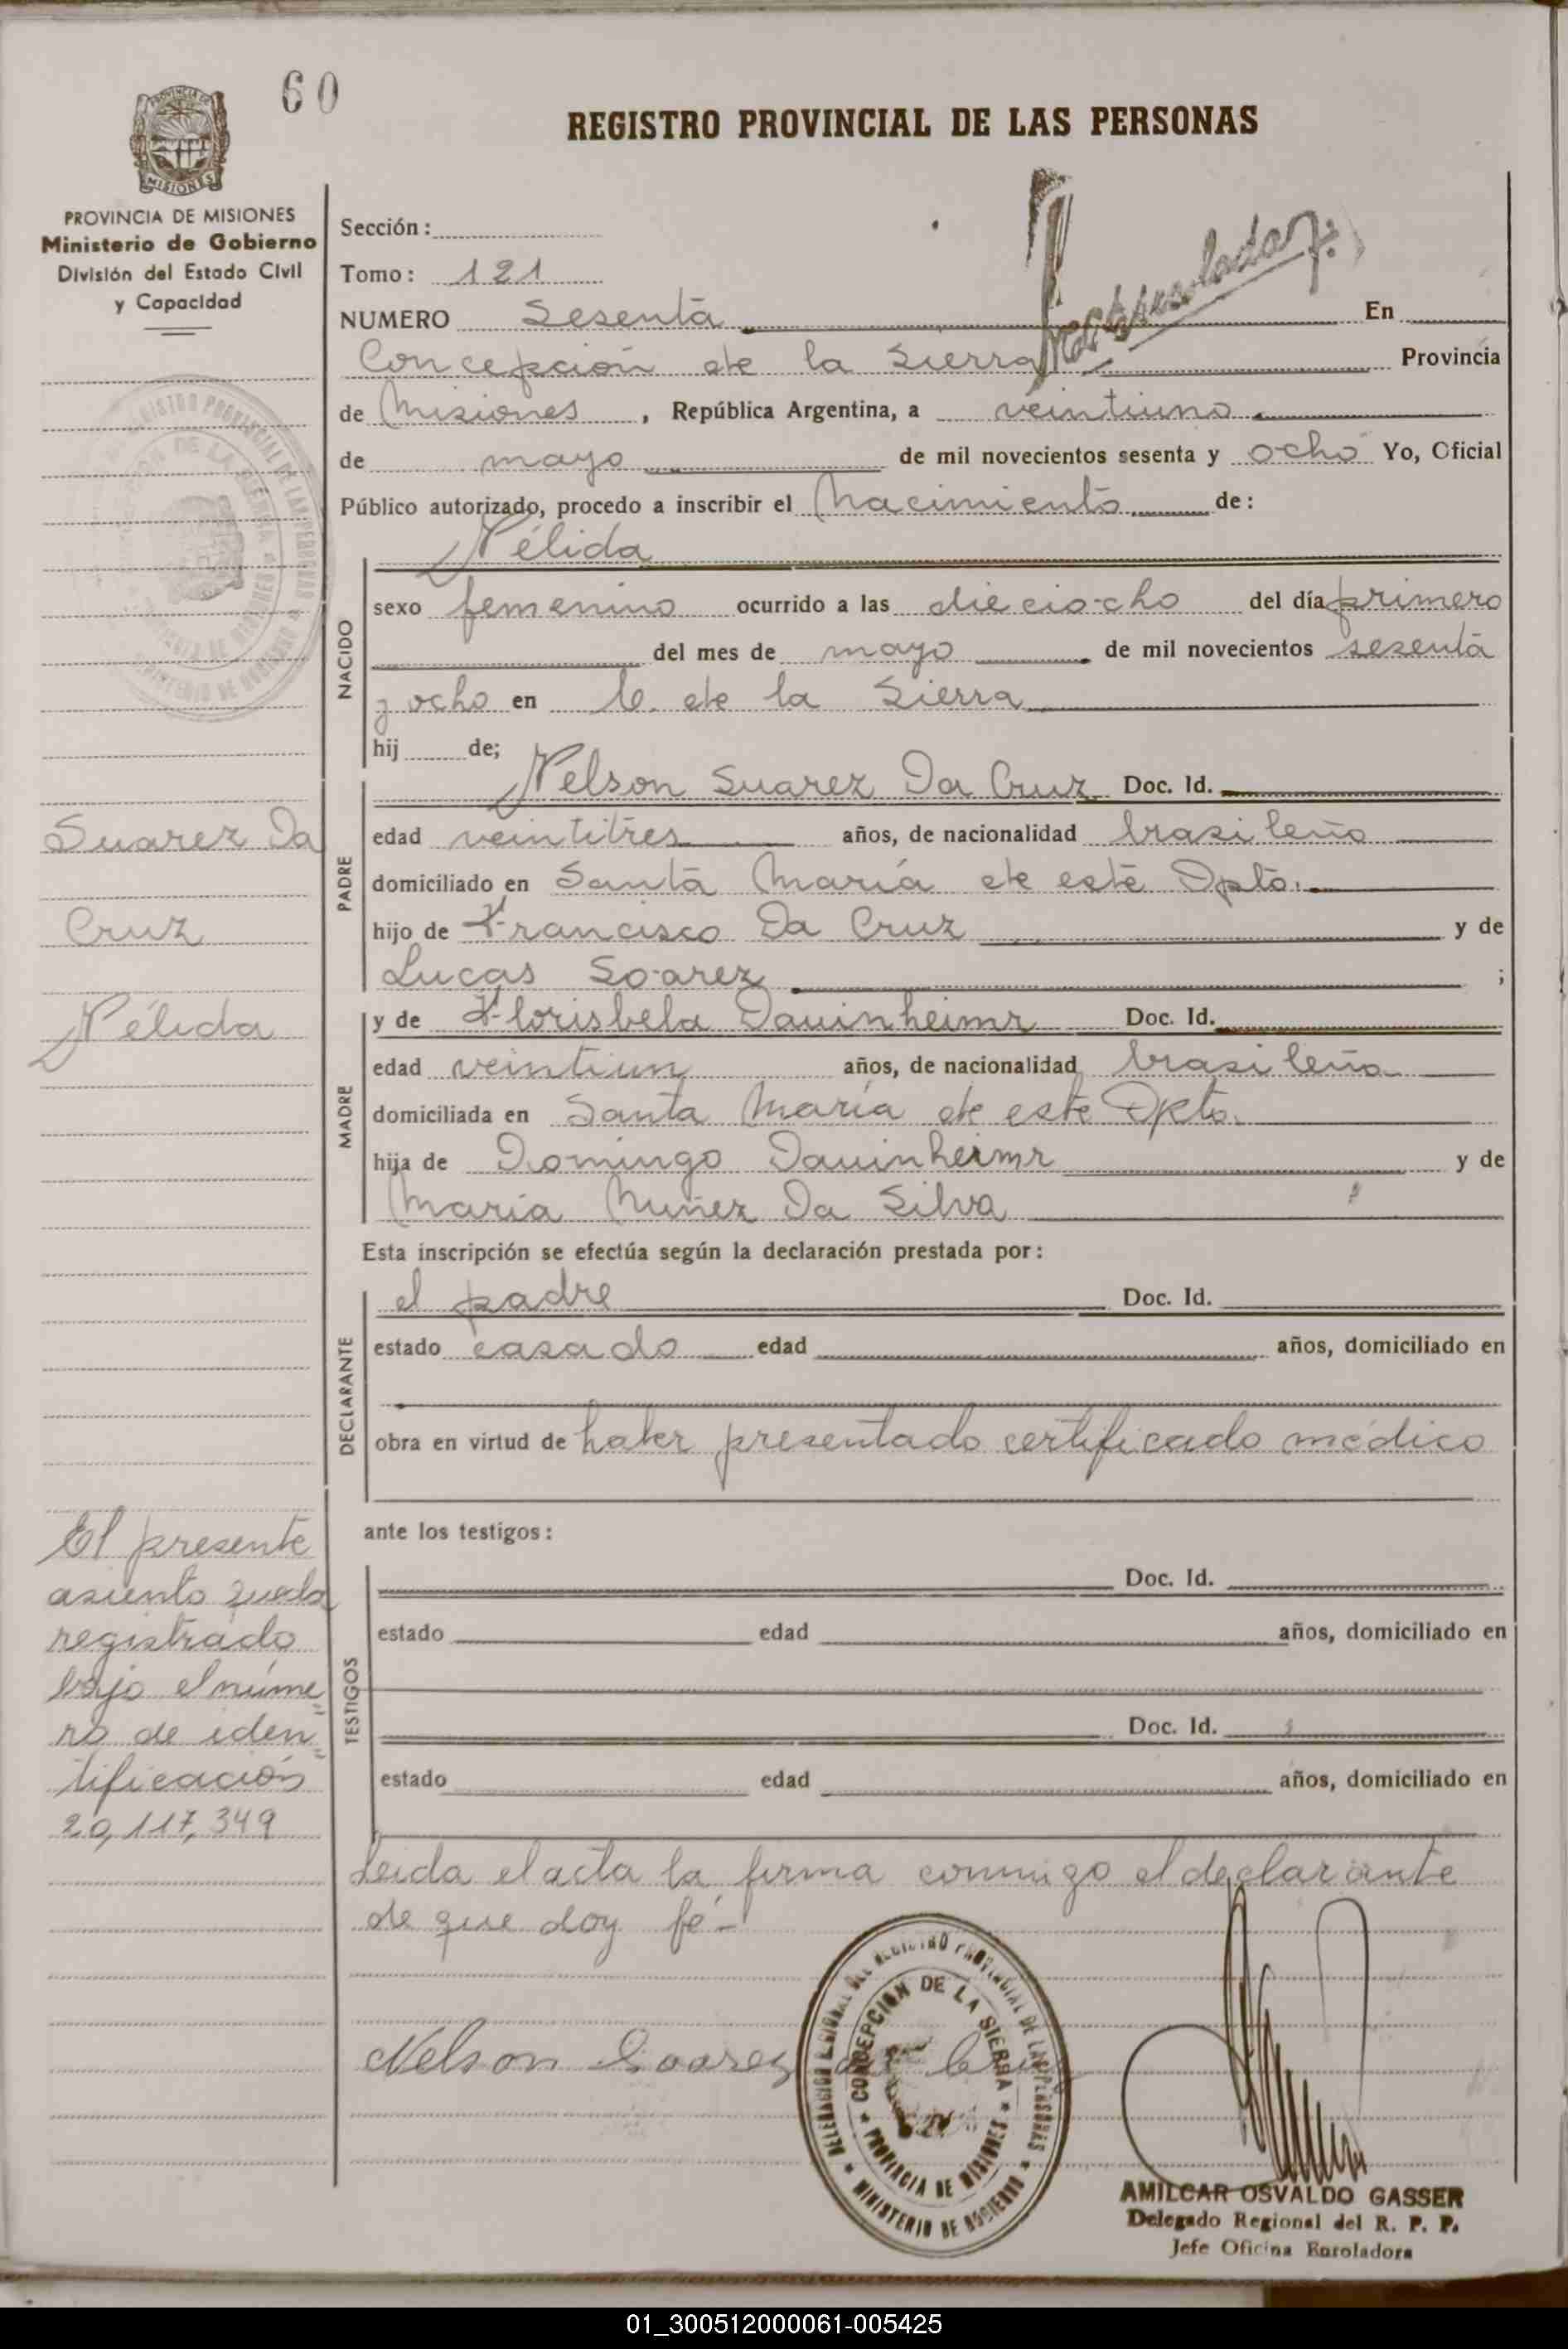 60
REGISTRO PROVINCIAL DE LAS PERSONAS
MISIONES
PROVINCIA DE MISIONES
Ministerio de Gobierno
División del Estado Civil
y Capacidad
Sección:
Tomo: 121
NUMERO Sesenta En
Concepción de la Sierra Provincia
de Misiones, República Argentina, a veintiuno
de mayo de mil novecientos sesenta y ocho Yo, Oficial
Público autorizado, procedo a inscribir el Nacimiento de:
Nélida
NACIDO
sexo femenino ocurrido a las dieciocho del día primero
del mes de mayo de mil novecientos sesenta
y ocho en C. de la Sierra
hij de;
PADRE
Nelson Suarez Da Cruz Doc. Id.
edad veintitres años, de nacionalidad brasileño
domiciliado en Santa María de este Dpto.
hijo de Francisco Da Cruz y de
Lucas Soarez ;
MADRE
y de Florisbela Dauinheimr Doc. Id.
edad veintiun años, de nacionalidad brasileña
domiciliada en Santa María de este Dpto.
hija de Domingo Dauinheimr y de
María Nuñez Da Silva
Suarez Da
Cruz
Nélida
Esta inscripción se efectúa según la declaración prestada por:
DECLARANTE
el padre Doc. Id.
estado casado edad años, domiciliado en
obra en virtud de haber presentado certificado médico
ante los testigos:
TESTIGOS
Doc. Id.
estado edad años, domiciliado en
Doc. Id.
estado edad años, domiciliado en
El presente
asiento queda
registrado
bajo el núme
ro de iden
tificación
20,117,349
Leida el acta la firma conmigo el declarante
de que doy fé-
Nelson Soarez da Cruz
DELEGACION REGIONAL DEL REGISTRO PROVINCIAL DE LAS PERSONAS
CONCEPCION DE LA SIERRA
PROVINCIA DE MISIONES
MINISTERIO DE GOBIERNO
AMILCAR OSVALDO GASSER
Delegado Regional del R. P. P.
Jefe Oficina Enroladora
01_300512000061-005425